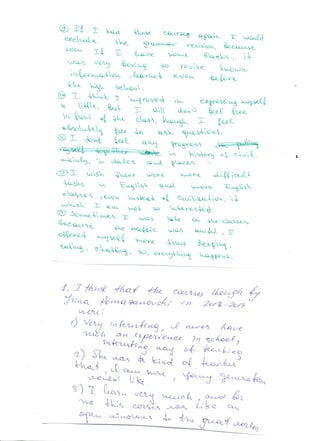 ③ If I had these courses again I would
exclude the grammar revision, because
even if I have some blacks, it
was very boring to revise known
information, learnt even before
the high school.
④ I think I improved in expressing myself
a little. But I still don't feel free
in front of the class, though I feel
absolutely free to ask questions.
⑤ I dont feel any progress
in history of civil.
mainly, in dates and places.
I wish there were more difficult
tasks in English and more English
classes, even instead of civilization, it
which I am not so interested.
Sometimes I was late on the classes
because the traffic was awful, I
offered myself more time sleeping,
eating, chatting, so, everything happens.
1. I think that the courses though by
Irina Pomazanovski in 2013-2013
were:
1) Very interesting, I never have
such an experience in school,
interesting way of teaching
2) She was a kind of teacher
that, I am sure, young generation
would like
3) I learn very much, and for
me this course was like an
open window to the great world,